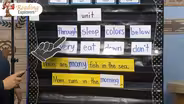 Reading
Explorers
unit
through sleep colors below
very eat down don't
There are many fish in the sea.
Mom runs in the morning.